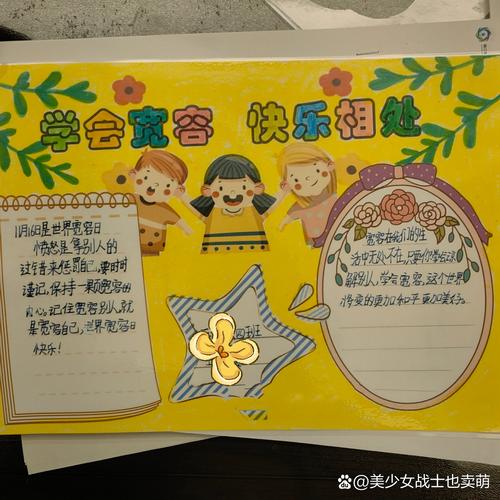 学会宽容 快乐相处
11月16日是世界宽容日
愤怒是拿别人的
过错来惩罚自己,要时时
谨记,保持一颗宽容的
内心,记住宽容别人,就
是宽容自己,世界宽容日
快乐!
四班
宽容在我们的生
活中无处不在,只要你学会谅
解别人,学会宽容,这个世界
将变的更加和平更加美好。
@美少女战士也卖萌